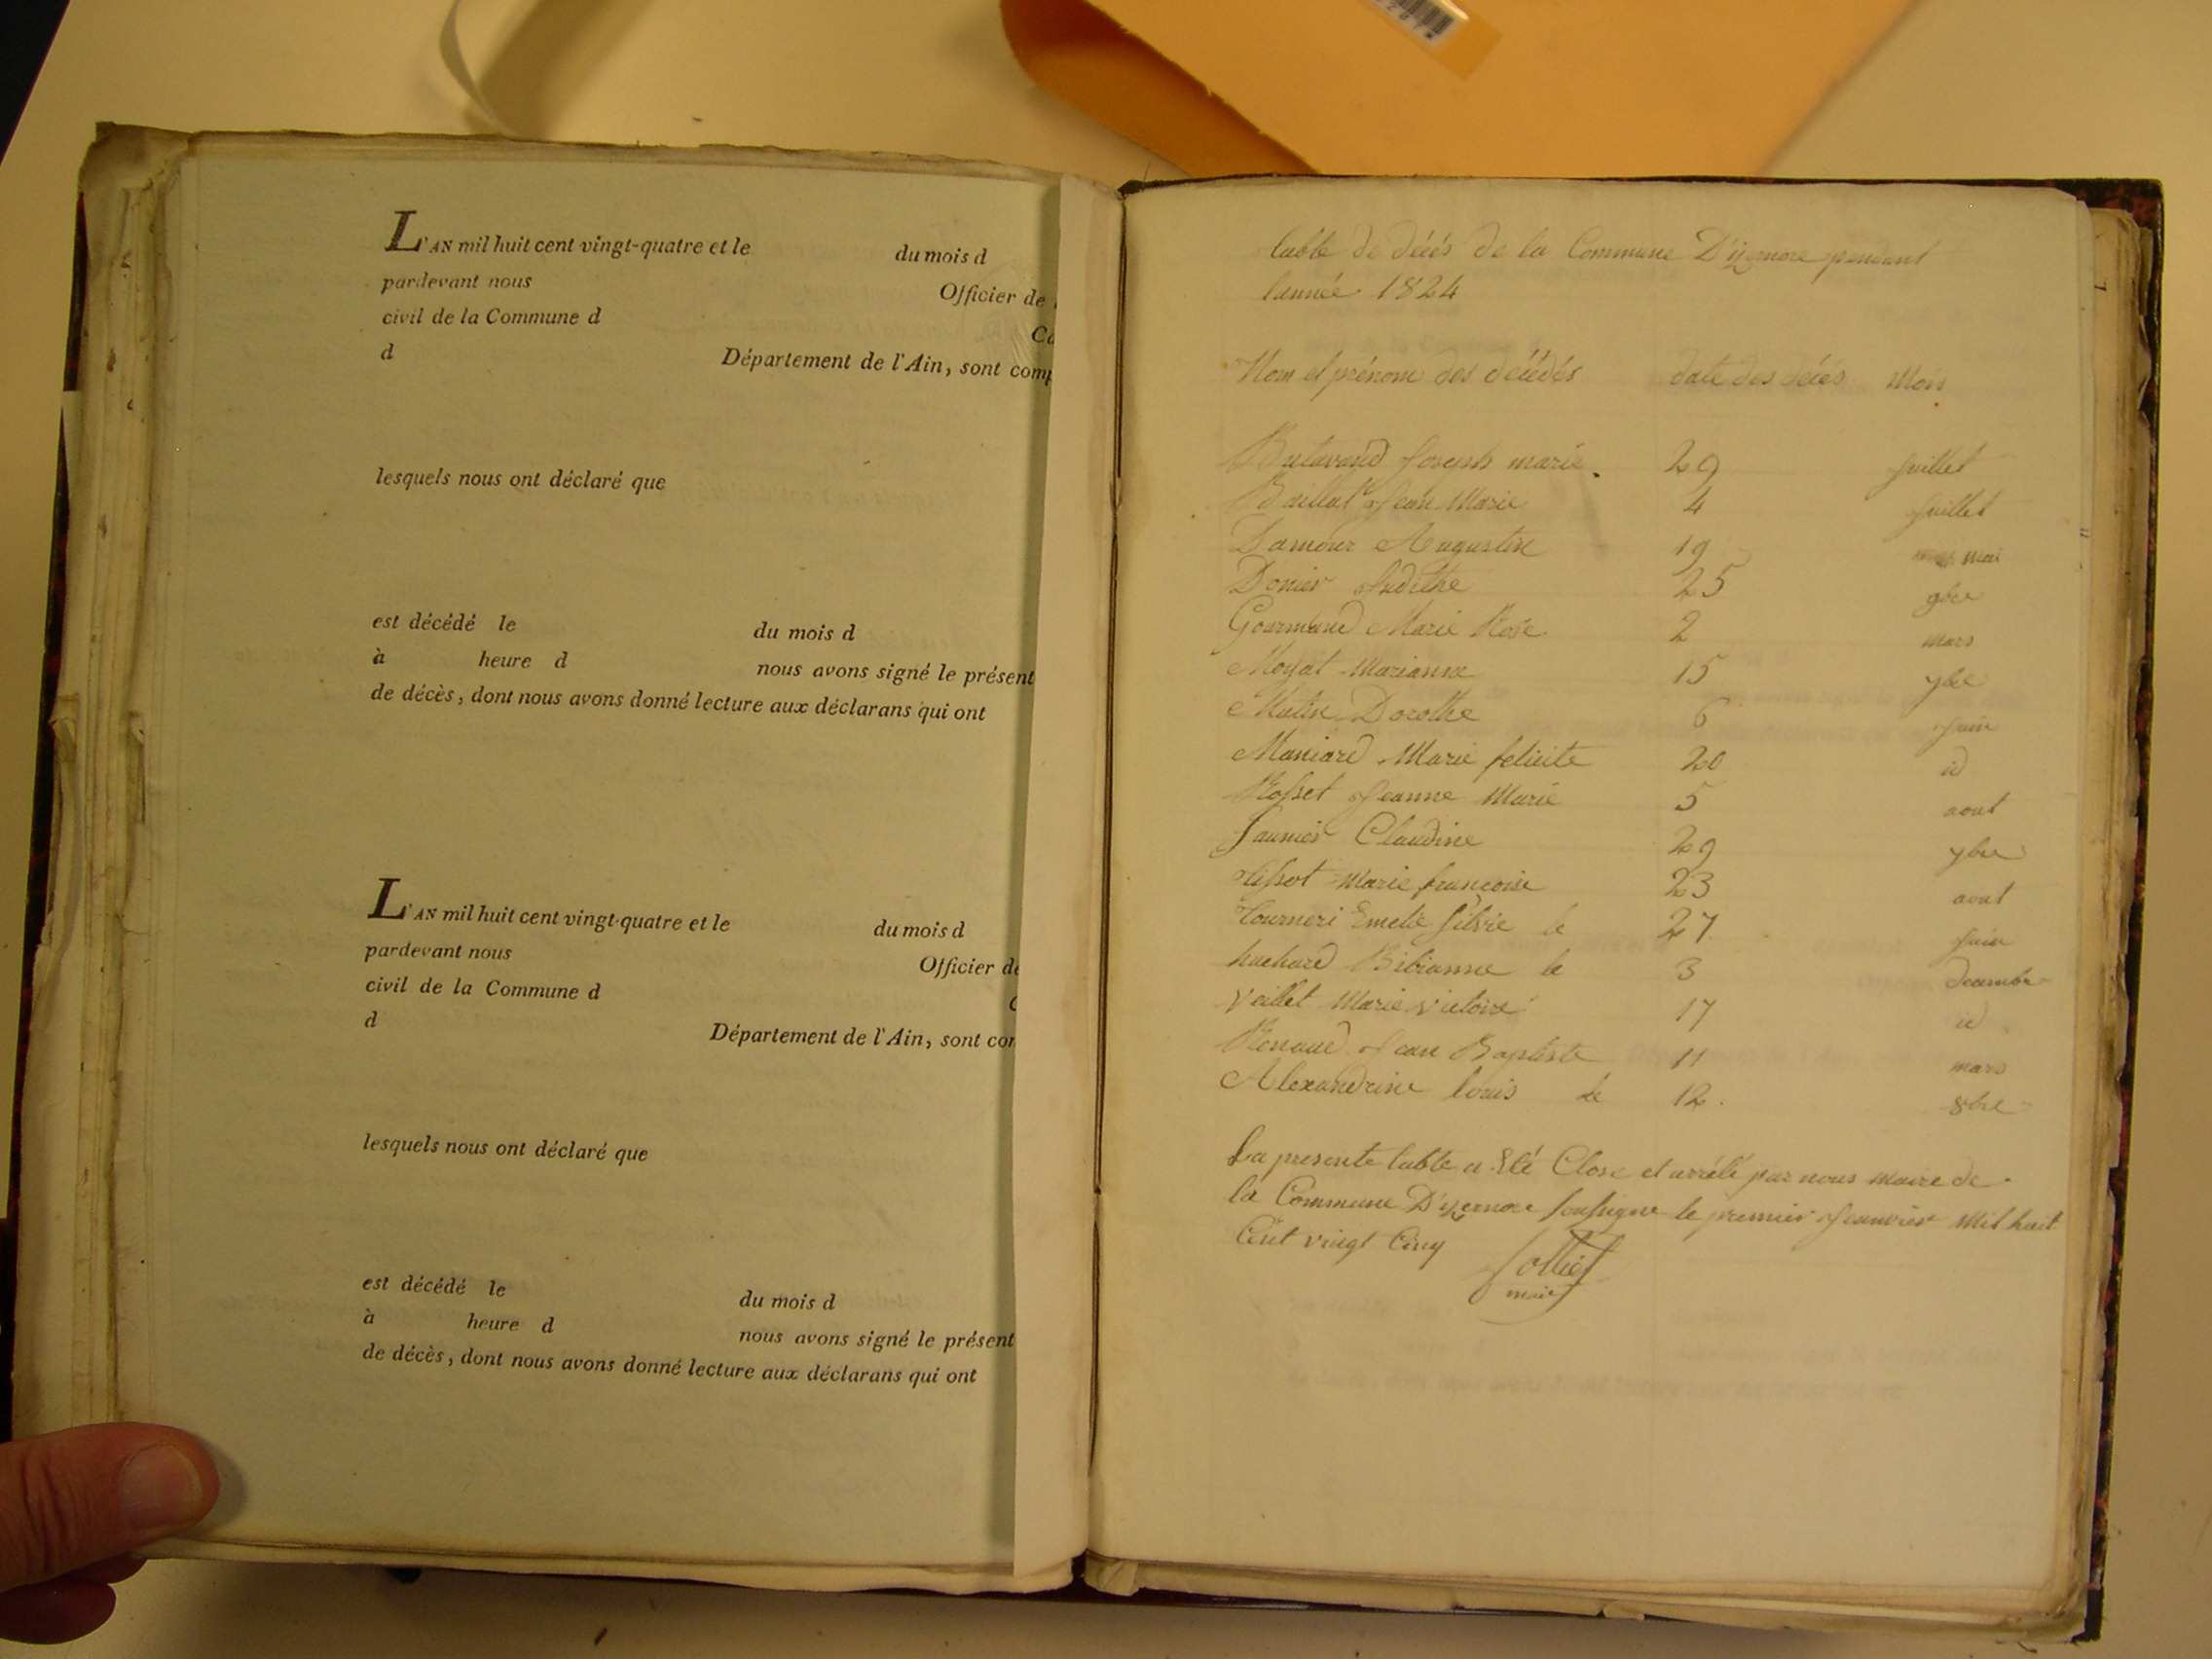 L'AN mil huit cent vingt-quatre et le du mois d
pardevant nous Officier de
civil de la Commune d
d Département de l'Ain, sont comp
lesquels nous ont déclaré que
est décédé le du mois d
à heure d nous avons signé le présent
de décès, dont nous avons donné lecture aux déclarans qui ont
L'AN mil huit cent vingt-quatre et le du mois d
pardevant nous Officier de
civil de la Commune d
d Département de l'Ain, sont con
lesquels nous ont déclaré que
est décédé le du mois d
à heure d nous avons signé le présent
de décès, dont nous avons donné lecture aux déclarans qui ont
table de décès de la Commune D'izernore pendant
l'année 1824
Nom et prénom des décédés date des décés Mois
Butavand Joseph marie 29 Juillet
Baillat Jean Marie 4 Juillet
Damour Augustin 19 mai
Donier Judithe 25 9bre
Gourmand Marie Rose 2 mars
Moyat Marianne 15 7bre
Mulin Dorothe 6 Juin
Maniard Marie felicite 20 id
Rosset Jeanne Marie 5 aout
Jaunier Claudine 29 7bre
Tissot Marie françoise 23 aout
Tourneri Emelie Silvie le 27 Juin
huchard Bibianne le 3 Decembre
Vaillet Marie victoire 17 id
Renaud Jean Baptiste 11 mars
Alexandrine louis le 12. 8bre
La presente table a Eté Close et arrété par nous maire de
la Commune D'izernore soussigne le premier Janvier Mil huit
Cent vingt Cinq
maire